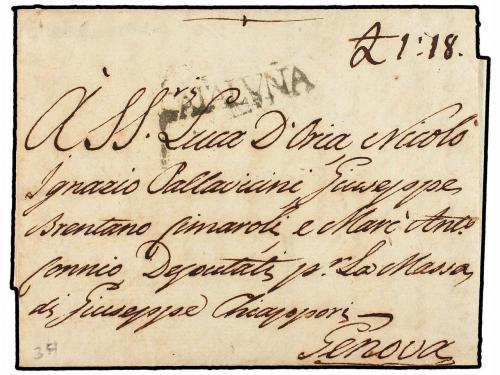 ₤ 1:18.
CATALVÑA
À SS.rs Luca D'Oria Nicolò
Ignazio Pallavicini Giuseppe
Brentano Cimaroli e Marc' Ant.o
Connio Deputati p.r La Massa
di Giuseppe Chiappori
Genova